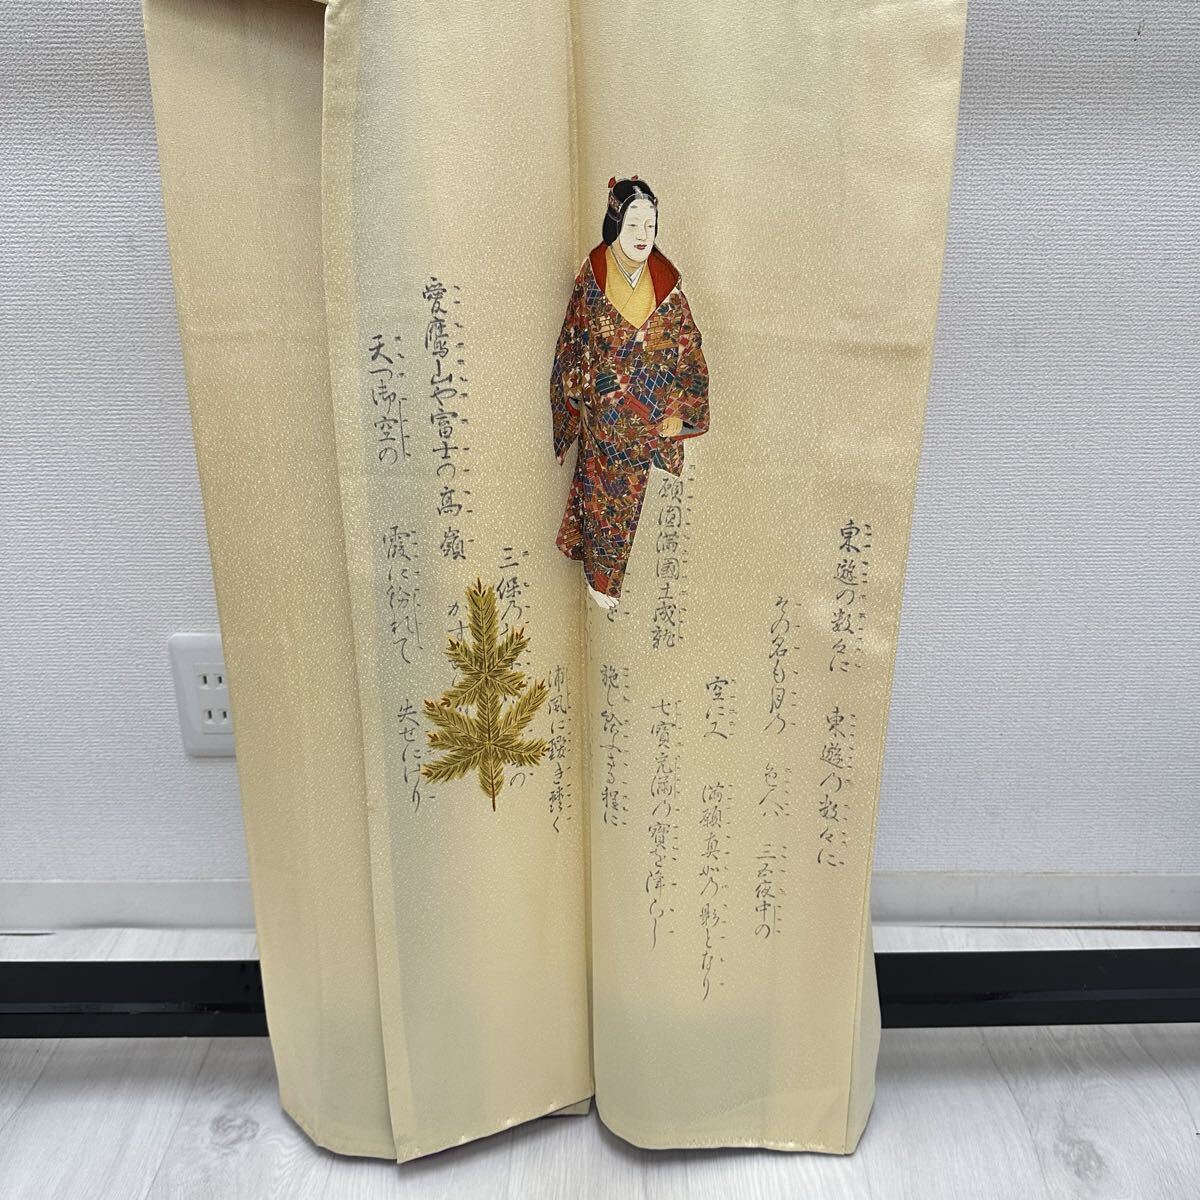 東遊の数々に 東遊の数々に
その名も月の 色人ハ 三五夜中の
空に又 満願真如の影となり
願圓満國土成就 七寶充満の寶を降らし
を 施し給ふさる程に
浦風に靉き靉く
三保の の
愛鷹山や富士の高嶺 かす
天つ御空の 霞に紛れて 失せにけり